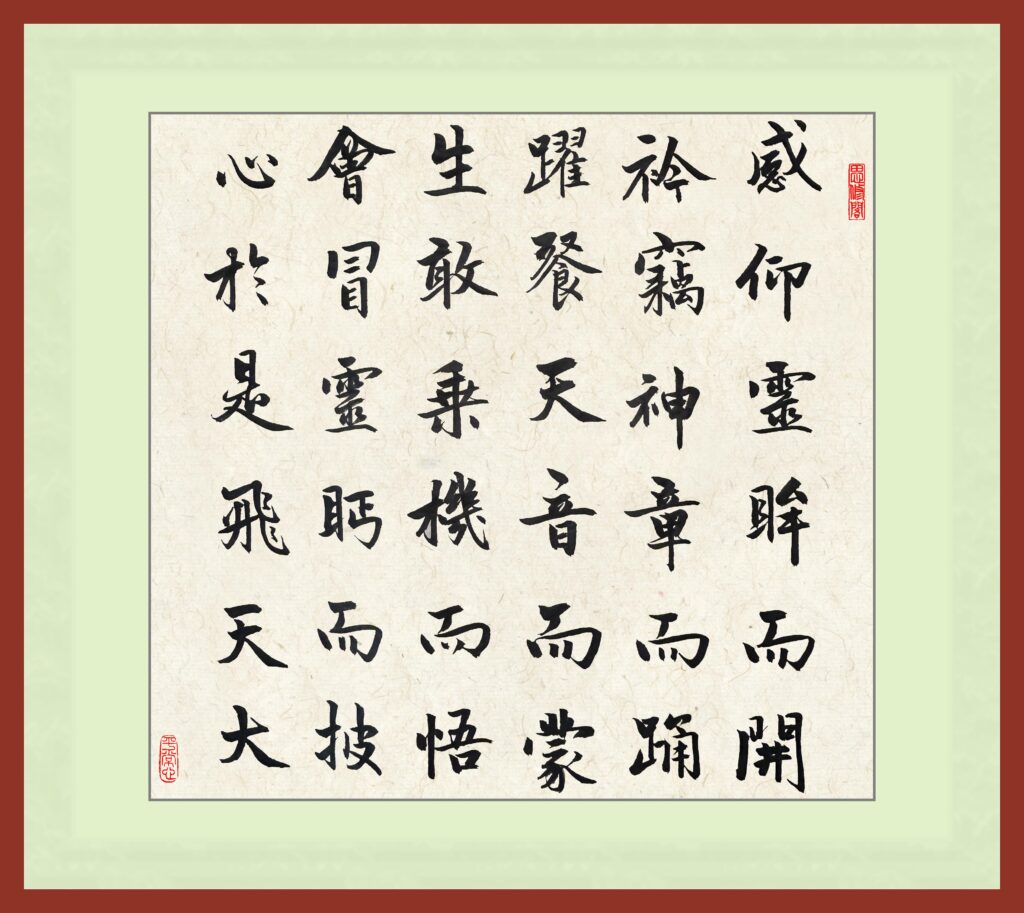 感仰靈眸而開
衿竊神章而踊
躍餐天音而蒙
生敢乗機而悟
會冒靈眄而披
心於是飛天大